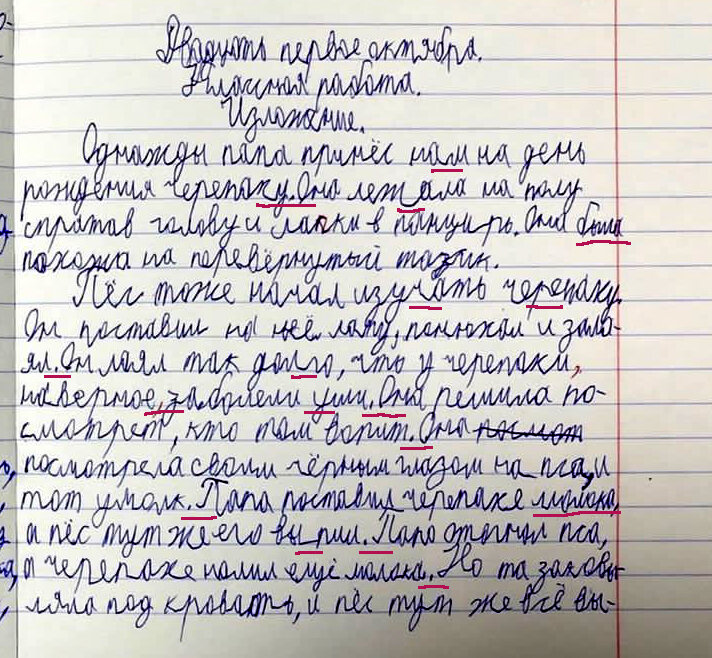 Двадцать первое октября.
Классная работа.
Изложение.
Однажды папа принёс нам на день
рождения черепаху. Она лежала на полу
спрятав голову и лапки в панцирь. Она была
похожа на перевёрнутый тазик.
Пёс тоже начал изучать черепаху.
Он поставил на неё лапу, понюхал и зала-
ял. Он лаял так долго, что у черепахи,
наверное, заболели уши. Она решила по-
смотреть, кто там вопит. Она посмот
посмотрела своим чёрным глазом на пса, и
тот умолк. Папа поставил черепахе молока,
а пёс тут же его выпил. Папа отогнал пса,
а черепахе налил ещё молока. Но та заковы-
ляла под кровать, и пёс тут же всё вы-